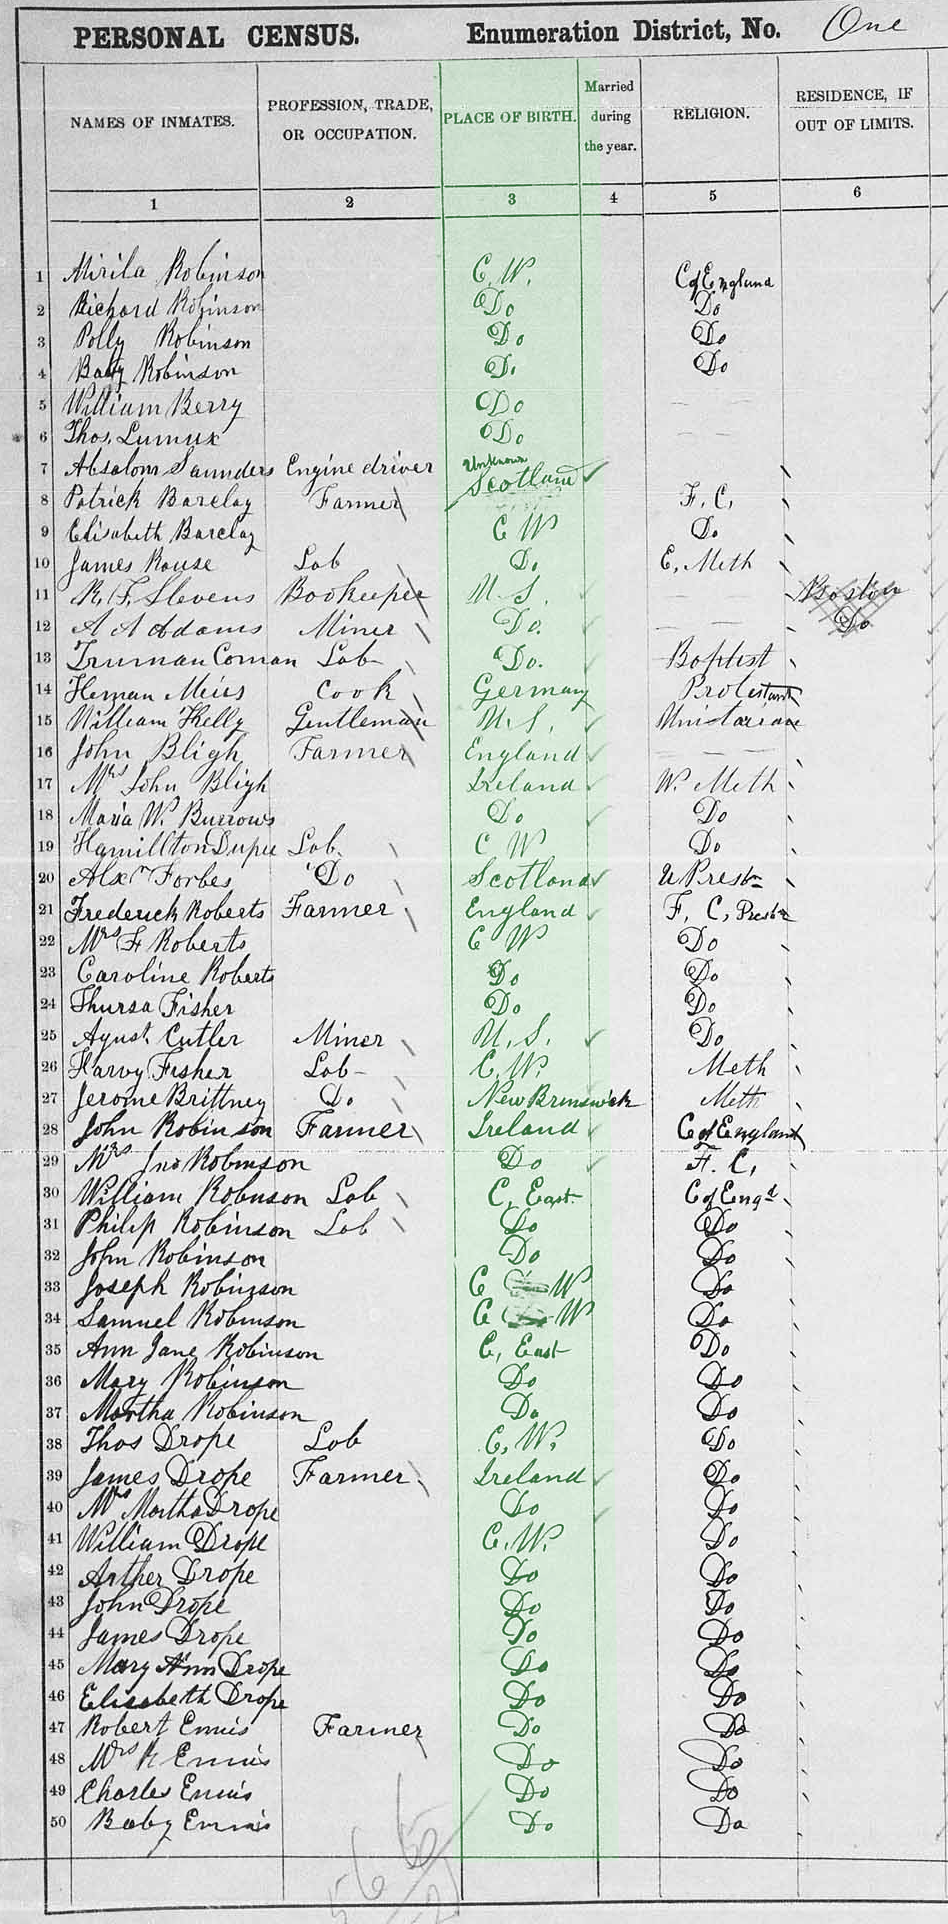 PERSONAL CENSUS. Enumeration District, No. One
NAMES OF INMATES. PROFESSION, TRADE, OR OCCUPATION. PLACE OF BIRTH. Married during the year. RELIGION. RESIDENCE, IF OUT OF LIMITS.
1 2 3 4 5 6
1 Mirila Robinson C. W. C of England
2 Richard Robinson Do Do
3 Polly Robinson Do Do
4 Baby Robinson Do Do
5 William Berry Do — —
6 Thos. Lumux Do — —
7 Absalom Saunders Engine driver Unknown
8 Patrick Barclay Farmer Scotland F. C.
9 Elisabeth Barclay C W Do
10 James Rouse Lab Do. E. Meth
11 R. F. Stevens Bookeeper U. S. — — Boston
12 A A Adams Miner Do. — — Do
13 Truman Coman Lab Do. Baptist
14 Heman Meiis Cook Germany Protestant
15 William Kelly Gentleman U. S. Unitarian
16 John Bligh Farmer England — — —
17 Mrs John Bligh Ireland W. Meth
18 Maria W. Burrows Do Do
19 Hamillton Dupee Lab. C W Do
20 Alxr Forbes Do Scotland U Presbn
21 Frederick Roberts Farmer England F. C. Presbn
22 Mrs F Roberts C W Do
23 Caroline Roberts Do Do
24 Thursa Fisher Do Do
25 Agust. Cutler Miner U. S. Do
26 Harvy Fisher Lab C. W. Meth
27 Jerome Brittney Do New Brunswick Meth
28 John Robinson Farmer Ireland C of England
29 Mrs Jno Robinson Do F. C.
30 William Robinson Lab C. East C of Engd
31 Philip Robinson Lab Do Do
32 John Robinson Do Do
33 Joseph Robinson C W Do
34 Samuel Robinson C W Do
35 Ann Jane Robinson C. East Do
36 Mary Robinson Do Do
37 Martha Robinson Do Do
38 Thos Drope Lab C. W. Do
39 James Drope Farmer Ireland Do
40 Mrs Martha Drope Do Do
41 William Drope C. W. Do
42 Arther Drope Do Do
43 John Drope Do Do
44 James Drope Do Do
45 Mary Ann Drope Do Do
46 Elisabeth Drope Do Do
47 Robert Ennis Farmer Do Do
48 Mrs R Ennis Do Do
49 Charles Ennis Do Do
50 Baby Ennis Do Do